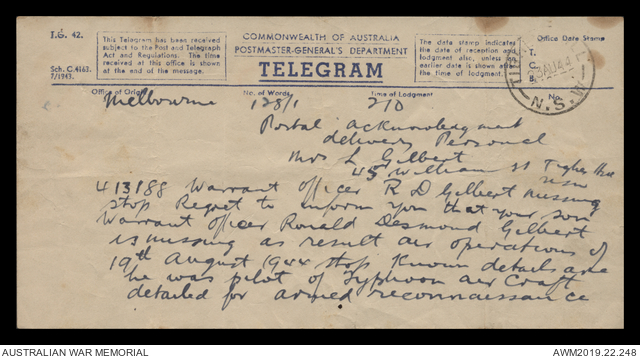 T.G. 42.
Sch. C.4163.
7/1943.
This Telegram has been received
subject to the Post and Telegraph
Act and Regulations. The time
received at this office is shown
at the end of the message.
COMMONWEALTH OF AUSTRALIA
POSTMASTER-GENERAL'S DEPARTMENT
TELEGRAM
The date stamp indicates
the date of reception and
lodgment also, unless an
earlier date is shown after
the time of lodgment.
Office Date Stamp
AU 44
N.S.W
Office of Origin
No. of Words
Time of Lodgment
No.
Melbourne 128/1 210
Postal acknowledgment
delivery Personal
Mrs L Gilbert
45 William St Tighes Hill
NSW
413188 Warrant Officer R D Gilbert missing
stop Regret to inform you that your son
Warrant Officer Ronald Desmond Gilbert
is missing as result air operations of
19th August 1944 stop Known details are
he was pilot of Typhoon air craft
detailed for armed reconnaissance
AUSTRALIAN WAR MEMORIAL
AWM2019.22.248